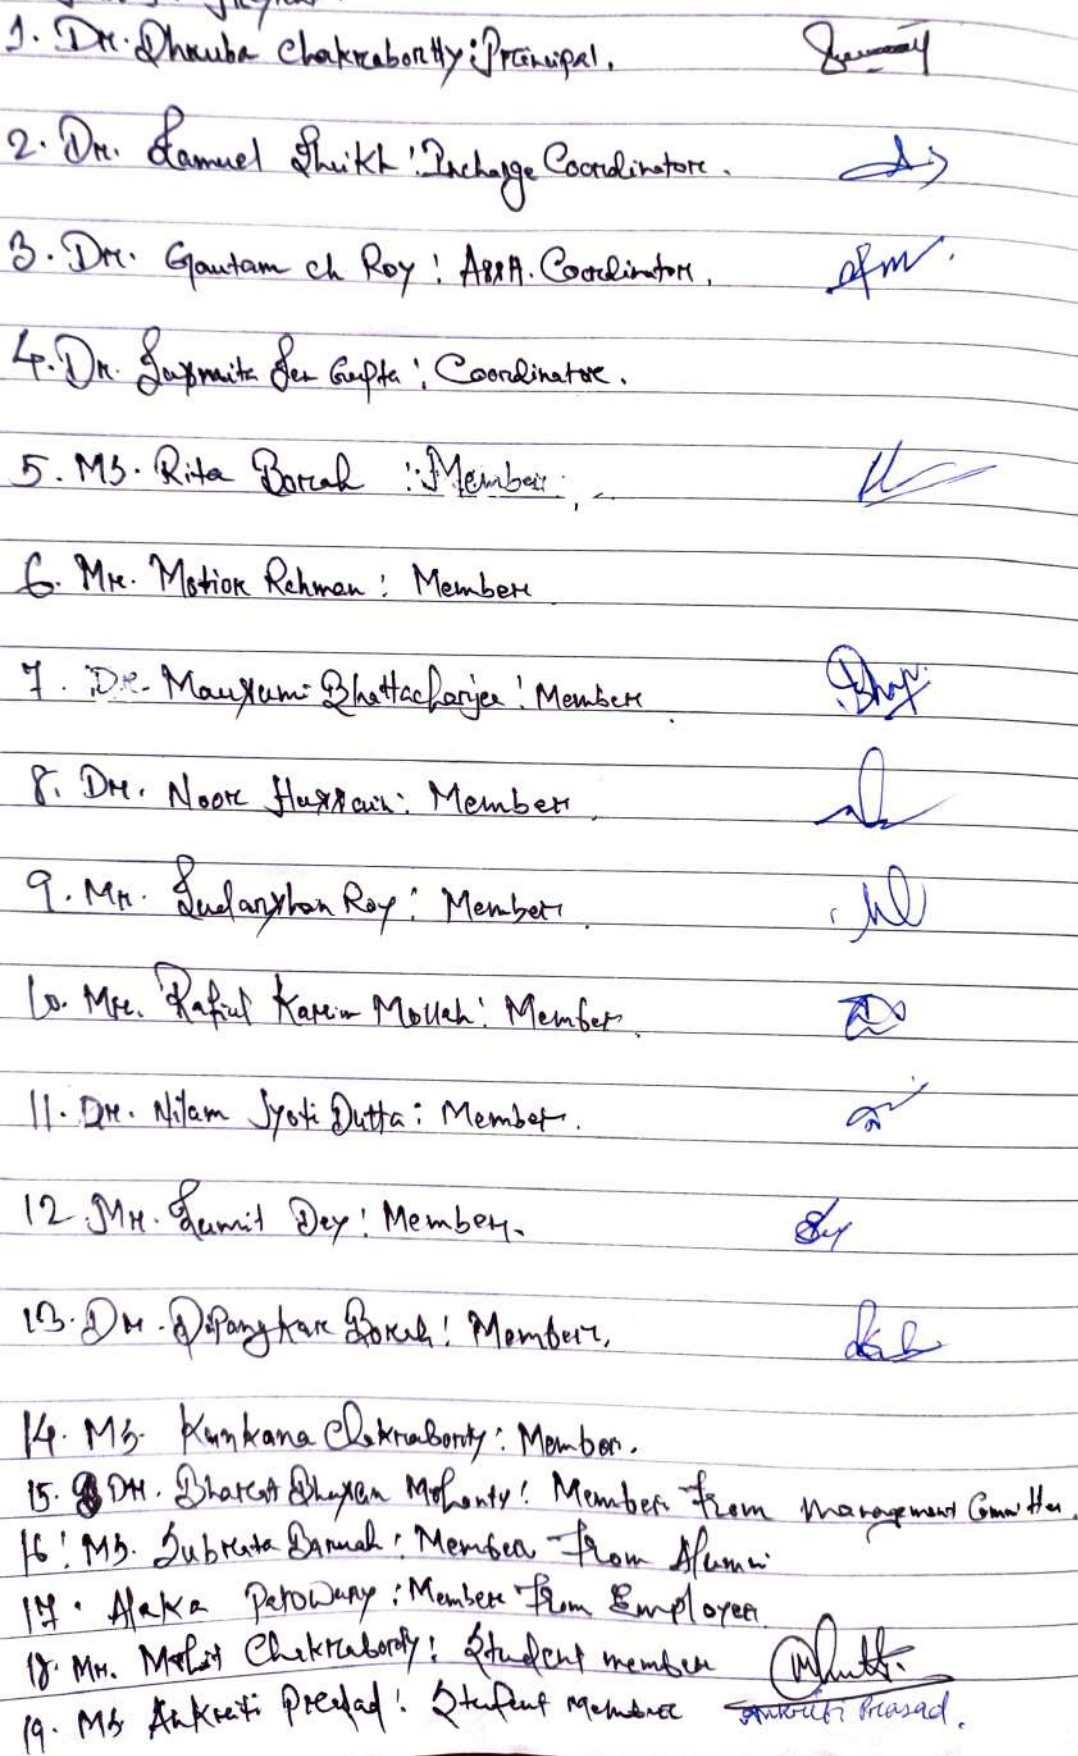 1. Dr. Dhruba Chakrabortty: Principal.
2. Dr. Samuel Sheikh: Incharge Coordinator.
3. Dr. Gautam ch Roy: Asst. Coordinator.
4. Dr. Susmita Sen Gupta: Coordinator.
5. Ms. Rita Borah: Member
6. Mr. Motior Rehman: Member
7. Dr. Mausumi Bhattacharjee: Member
8. Dr. Noor Hussain: Member
9. Mr. Sudarshan Roy: Member
10. Mr. Rafiul Karim Mollah: Member
11. Dr. Nilam Jyoti Dutta: Member.
12. Mr. Sumit Dey: Member.
13. Dr. Dipangkar Borah: Member.
14. Ms. Kankana Chakraborty: Member.
15. Dr. Bharat Bhusan Mohanty: Member from Management Committee.
16: Ms. Subrata Baruah: Member from Alumni
17. Alaka Patowary: Member from Employer
18. Mr. Mohit Chakraborty: Student member
19. Ms Ankriti Prasad: Student Member Ankriti Prasad.